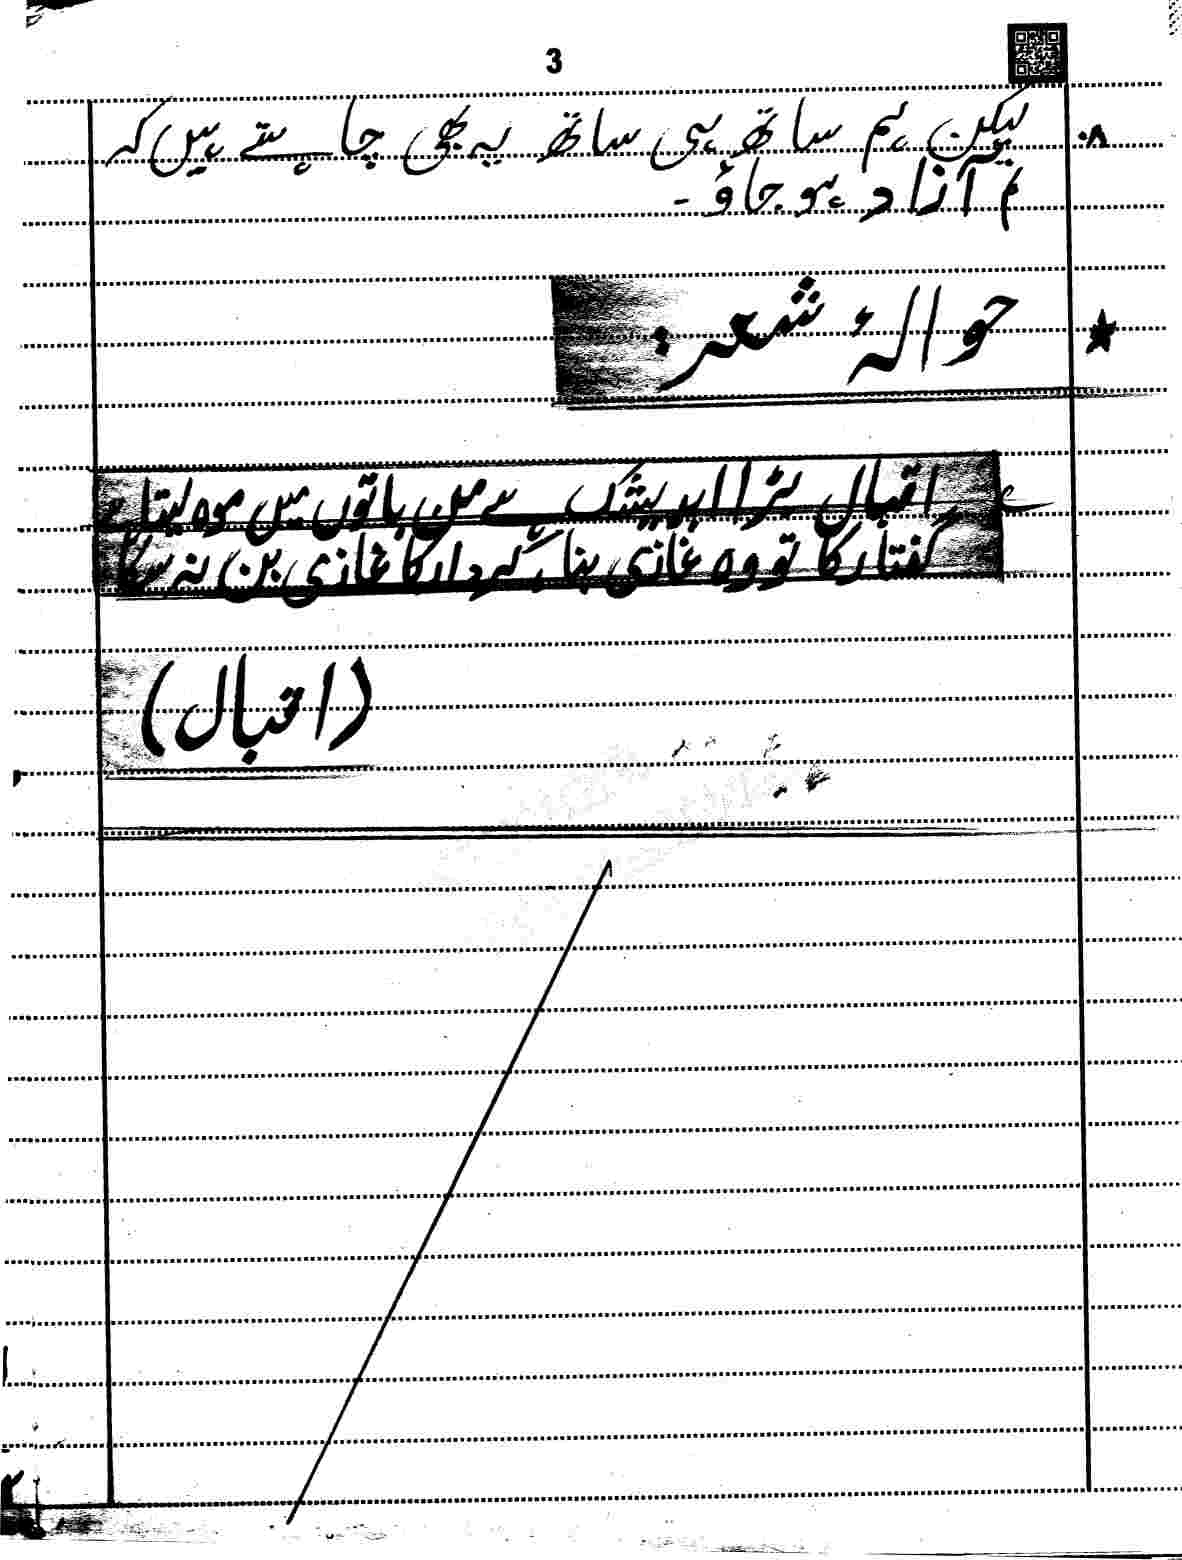 3
۰۸ لیکن ہم ساتھ ہی ساتھ یہ بھی چاہتے ہیں کہ
تم آزاد ہو جاؤ ۔
★ حوالۂ شعر :
؎ اقبال بڑا اپدیشک ہے من باتوں میں موہ لیتا ہے
گفتار کا تو وہ غازی بنا، کردار کا غازی بن نہ سکا
(اقبال)